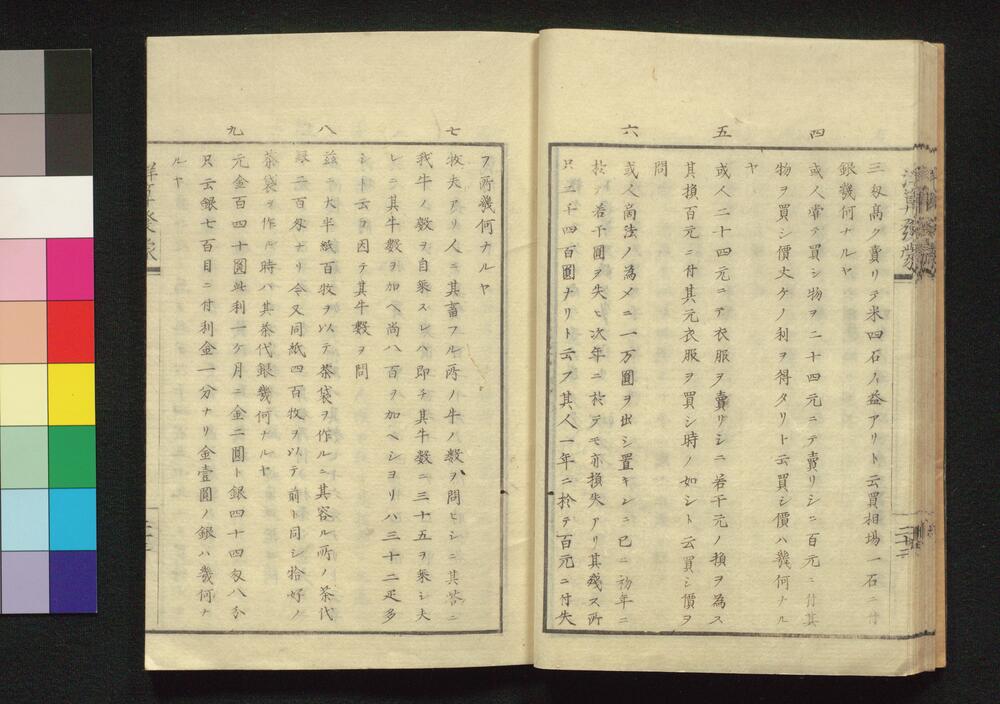 三匁高ク賣リテ米四石ノ益アリト云買相場一石ニ付
銀幾何ナルヤ
四
或人甞テ買シ物ヲ二十四元ニテ賣リシニ百元ニ付其
物ヲ買シ價丈ケノ利ヲ得タリト云買シ價ハ幾何ナル
ヤ
五
或人二十四元ニテ衣服ヲ賣リシニ若干元ノ損ヲ為ス
其損百元ニ付其元衣服ヲ買シ時ノ如シト云買シ價ヲ
問
六
或人商法ノ為メニ一万圓ヲ出シ置キシニ已ニ初年ニ
於テ若干圓ヲ失ヒ次年ニ於テモ亦損失アリ其残ス所
只二千四百圓ナリト云フ其人一年ニ於テ百元ニ付失
フ所幾何ナルヤ
七
牧夫アリ人ニ其畜フル所ノ牛ノ数ヲ問ヒシニ其答ニ
我牛ノ数ヲ自乗スレハ即チ其牛数ニ三十五ヲ乗シ夫
レニ其牛数ヲ加ヘ尚八百ヲ加ヘシヨリハ三十二疋多
シト云フ因テ其牛数ヲ問
八
茲ニ大半紙百牧ヲ以テ茶袋ヲ作ルニ其容ル所ノ茶代
銀二百匁ナリ今又同紙四百牧ヲ以テ前ト同シ拾好ノ
茶袋ヲ作ル時ハ其茶代銀幾何ナルヤ
九
元金百四十圓此利一ケ月ニ金二圓ト銀四十四匁八分
只云銀七百目ニ付利金一分ナリ金壹圓ノ銀ハ幾何ナ
ルヤ